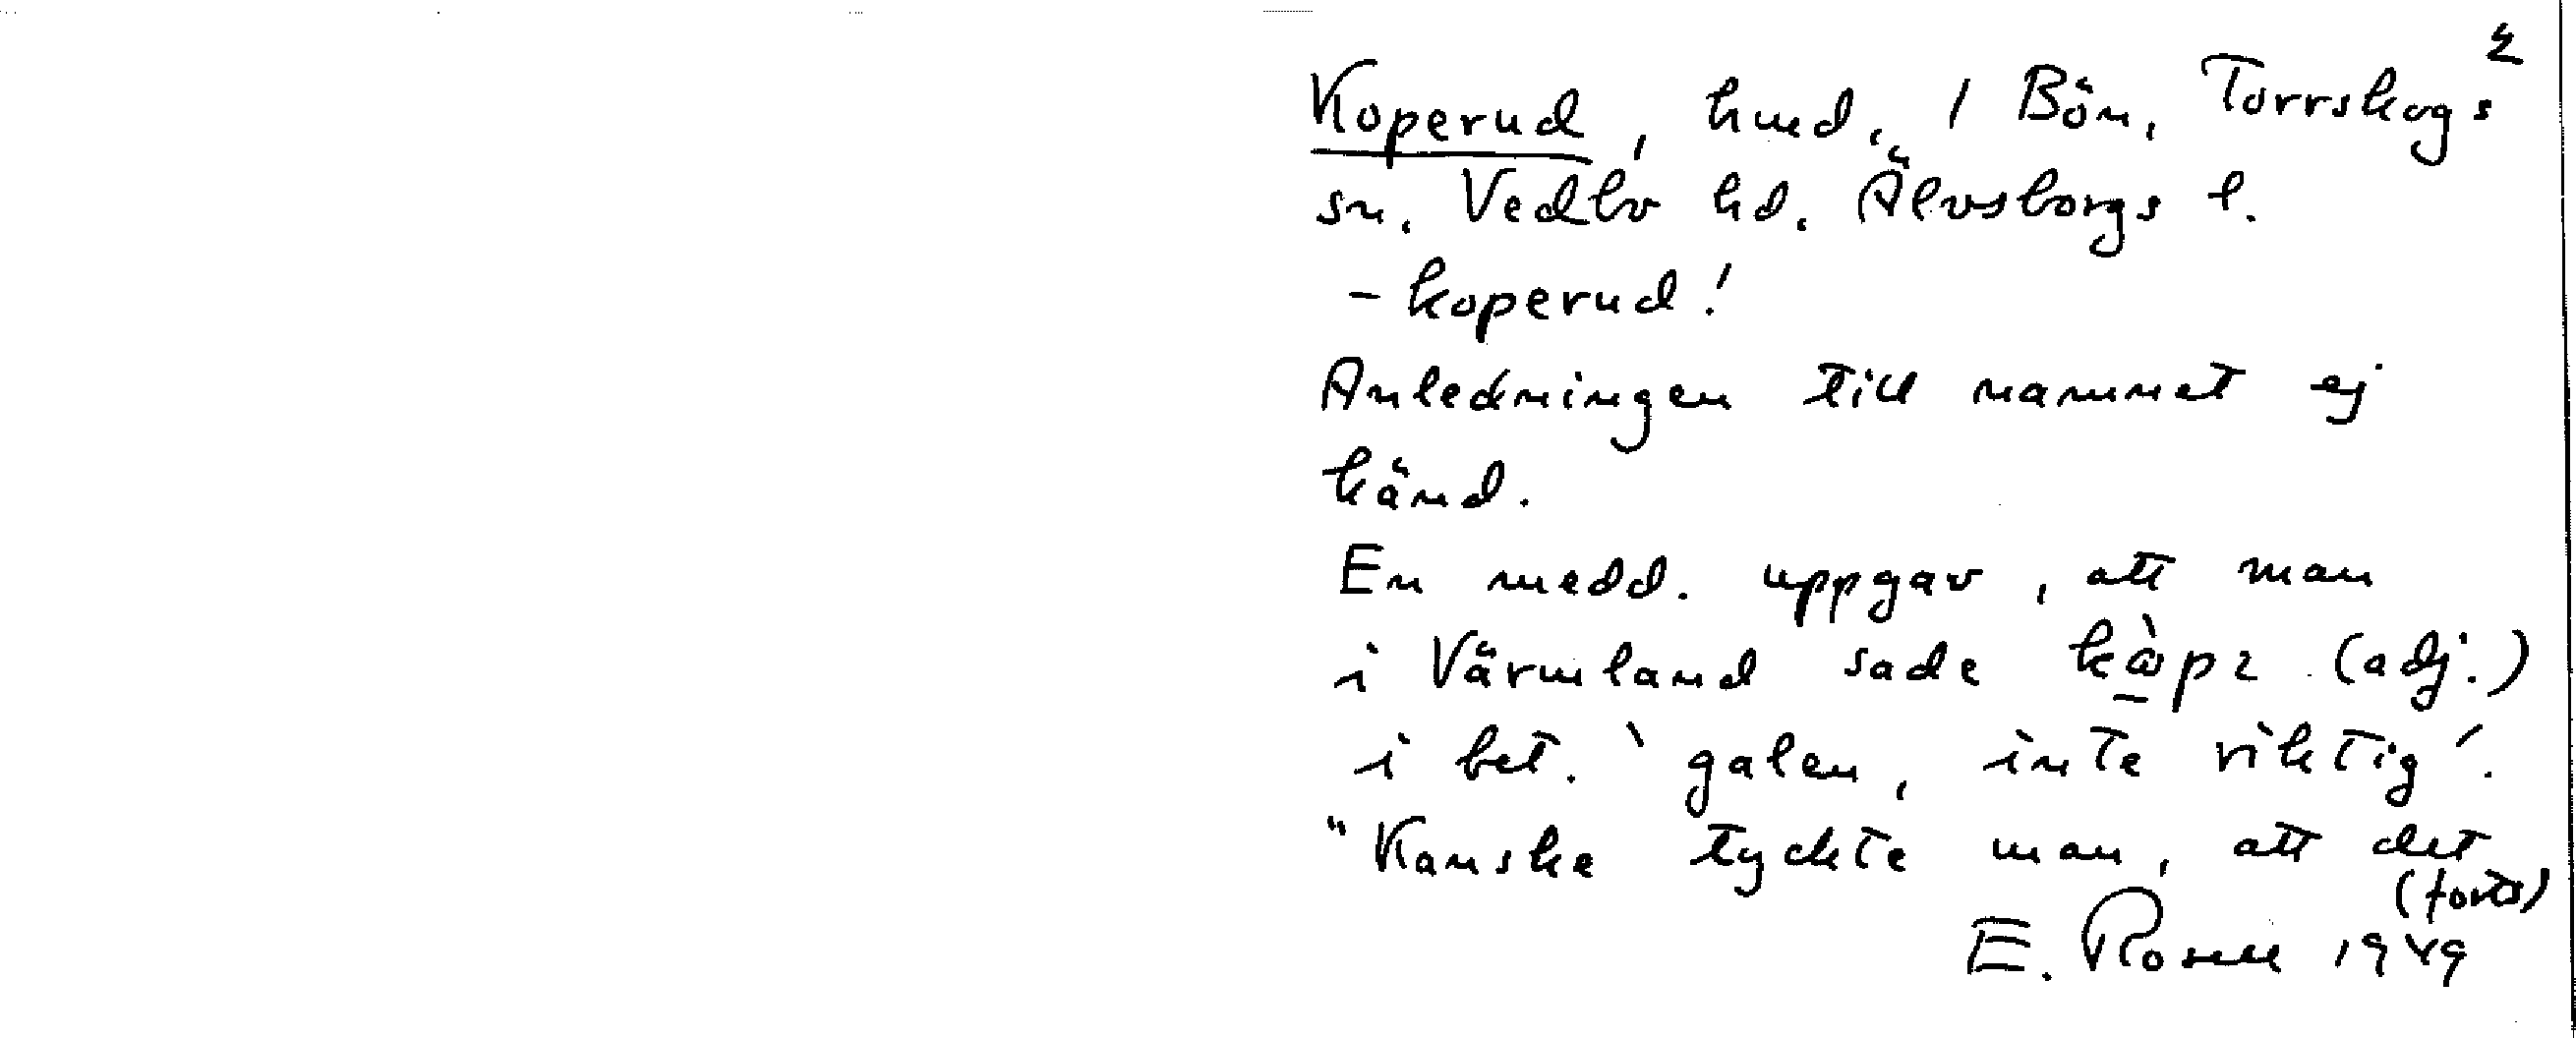 Σ
Koperud, hmd, 1 Bön, Torrskogs
sn. Vedbo hd. Älvsborgs l.
- koperud!
Anledningen till namnet ej
känd.
En medd. uppgav, att man
i Värmland sade (adj.)
i bet. `galen, inte riktig´.
"Kanske tyckte man, att det
(forts)
E. Rosell 1949